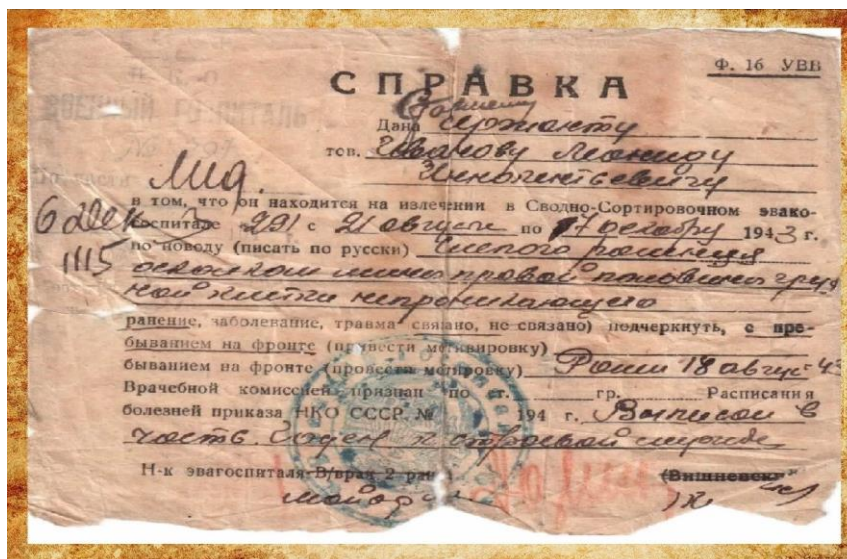 Ф. 16 УВВ
СПРАВКА
Дана Старшему сержанту
тов. Иванову Леониду
Иннокентьевичу
в том, что он находится на излечении в Сводно-Сортировочном эвако-
госпитале 291 с 21 августа по 17 октября 1943 г.
по поводу (писать по русски) Слепого ранения
осколком мины правой половины груд
ной клетки непроникающего
ранение, заболевание, травма связано, не связано) подчеркнуть, с пре-
быванием на фронте (привести мотивировку)
быванием на фронте (провести мотировку) Ранен 18 август 43
Врачебной комиссией признан по ст. гр. Расписания
болезней приказа НКО СССР № 194 г. Выписан в
часть. Годен к строевой службе
Н-к эвагоспиталя В/врач 2 ран (Вишневск
майор
ВОЕННЫЙ ГОСПИТАЛЬ
6 дек
1115